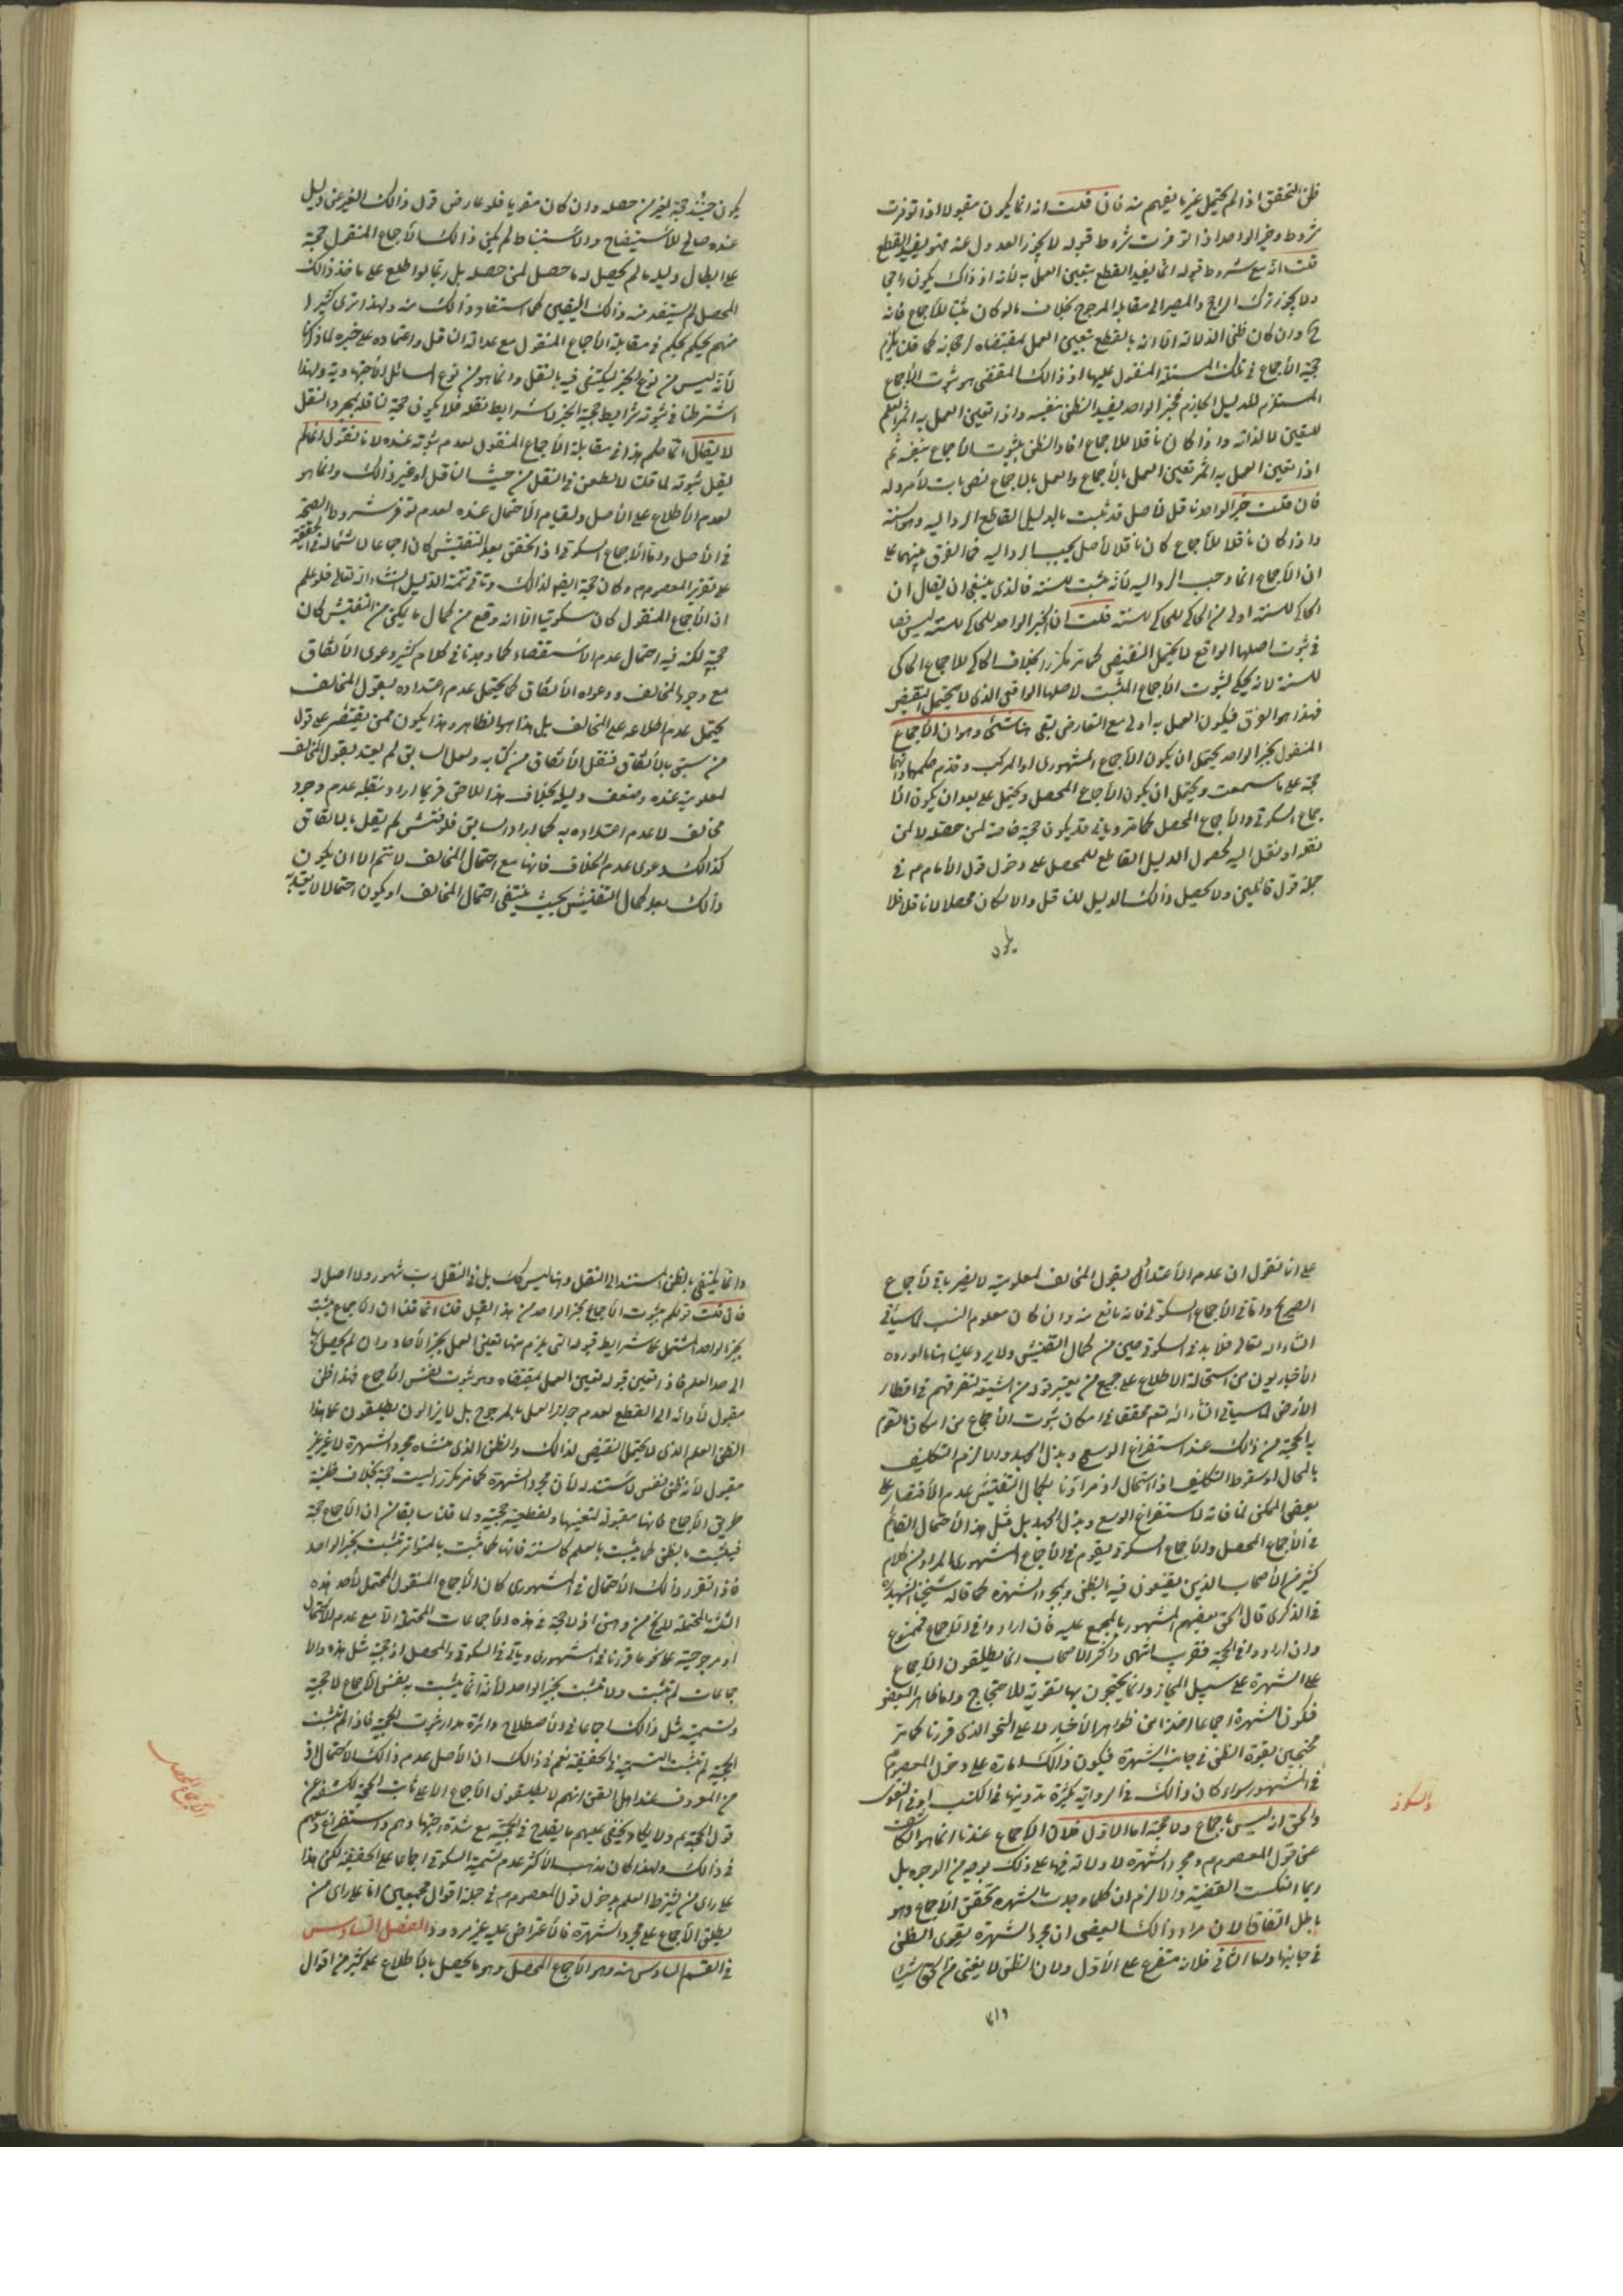 ظن التحقق اذا لم يحتمل غير ما يفهم منه فان قلت انه انما يكون مقبولا اذا توفرت
شروط وخبر الواحد اذا توفرت شروط قبوله لا يجوز العدول عنه فهو يفيد القطع
قلت انه مع شروط قبوله انما يفيد القطع بتعيين العمل به لأنه اذ ذاك يكون راجحا
ولا يجوز ترك الراجح والمصير الى مقابله المرجوح بخلاف ما لو كان مثبتا للأجماع فانه
ح وان كان ظني الدلالة الا انه بالقطع بتعيين العمل بمقتضاه لرجحانه كما قلنا يلزم
حجية الأجماع في تلك المسئلة المنقول عليها اذ ذالك المقتضي هو ثبوت الأجماع
المستلزم للدليل الجازم فخبر الواحد يفيد الظن بنفسه واذا تعين العمل به اثمر العلم
لليقين لا لذاته واذا كان ناقلا للاجماع افاد الظن بثبوت الأجماع بنفسه ثم
اذا تعين العمل به اثمر تعين العمل بالأجماع والعمل بالأجماع نص ثابت لأمر دله
فان قلت خبر الواحد ناقل لأصل قد ثبت بالدليل القاطع الرد اليه وهو السنة
واذا كان ناقلا للأجماع كان ناقلا لأصل يجب الرد اليه فما الفرق بينهما على
ان الأجماع انما وجب الرد اليه لأنه مثبت للسنة فالذي ينبغي ان يقال ان
الحاكي للسنة اولى من الحاكي للحاكي للسنة قلت ان الخبر الواحد للحاكي للسنة ليس نصا
في ثبوت اصلها الواقع لا يحتمل النقيض كما مر مكررا بخلاف الحاكي للاجماع الحاكي
للسنة لأنه يحكي لثبوت الأجماع المثبت لاصلها الواقعي الذي لا يحتمل النقيض
فهذا هو الفرق فيكون العمل به اولى مع التعارض بقي هنا شئ وهو ان الأجماع
المنقول بخبر الواحد يحتمل ان يكون الأجماع المشهوري او المركب وتقدم حكمهما وانهما
حجة على ما سمعت ويحتمل ان يكون الأجماع المحصل ويحتمل على بعد ان يكون الأ
جماع السكوتي والأجماع المحصل كما مر ويأتي قد يكون حجة خاصة لمن حصله لا لمن
نقله او نقل اليه لحصول الدليل القاطع للمحصل على دخول قول الأمام م في
جملة قول قائلين ولا يحصل ذالك الدليل للناقل والا لكان محصلا لا ناقلا فلا
يكون
يكون حينئذ حجة لغير من حصله وان كان مقويا فلو عارض قول ذالك الغير عن دليل
عنده صالح للأستيضاح والأستنباط لم يكن ذالك الأجماع المنقول حجة
على ابطال دليله ما لم يحصل له ما حصل لمن حصله بل ربما لو اطلع على مأخذ ذالك
المحصل لم يستفد منه ذالك اليقين كما استفاد ذالك منه ولهذا ترى كثيرا
منهم يحكم بحكم في مقابلة الأجماع المنقول مع عدالة الناقل واعتماده على خبره لما ذكرنا
لأنه ليس من نوع الخبر ليكتفى فيه بالنقل وانما هو من نوع المسائل الأجتهادية ولهذا
اشترطنا في ثبوته شرايط حجية الخبر لا شرايط نقله فلا يكون حجة لناقله بمجرد النقل
لا يقال انما حكم هذا في مقابلة الأجماع المنقول لعدم ثبوته عنده لانا نقول انما لم
يقل بثبوته لما قلت لا لطعن في النقل من حيث الناقل او غير ذالك وانما هو
لعدم الأطلاع على الأصل ولقيام الأحتمال عنده لعدم توفر شروط الصحة
في الأصل واما الأجماع السكوتي اذا تحقق بعد التفتيش كان اجماعا لاشتماله في الحقيقة
على تقرير المعصوم م وكان حجة ايضا لذالك ويأتي تتمة الدليل انشاء الله تعالى فلو علم
ان الأجماع المنقول كان سكوتيا الا انه وقع من كمال ما يمكن من التفتيش كان
حجة لكنه فيه احتمال عدم الأستقصاء كما وجدنا في كلام كثير دعوى الأتفاق
مع وجود المخالف ودعواه الأتفاق كما يحتمل عدم اعتداده بقول المخالف
يحتمل عدم اطلاعه على المخالف بل هذا هو الظاهر وهذا يكون ممن يقتصر على قول
من سبق بالأتفاق فنقل الأتفاق من كتابه ولعل السابق لم يعتد بقول المخالف
لمعلوميته عنده وضعف دليله بخلاف هذا اللاحق فربما اراد بنقله عدم وجود
مخالف لا عدم اعتداده به كما اراد السابق فلو فتش لم يقل بالاتفاق
كذالك دعوى عدم الخلاف فانها مع احتمال المخالف لا تتم الا ان يكون
ذالك بعد كمال التفتيش بحيث ينتفي احتمال المخالف او يكون احتمالا لا يعتد به
على انا نقول ان عدم الأعتداد بقول المخالف لمعلوميته لا يضر باقي الأجماع
الصحيح واما في الأجماع السكوتي فانه مانع منه وان كان معلوم النسب كما سيأتي
انشاء الله تعالى فلا بد في السكوتي من كمال التفتيش ولا يرد علينا هنا ما اورده
الأخباريون من استحالة الاطلاع على جميع من يعتبر قوله من الشيعة لتفرقهم في اقطار
الأرض لما سيأتي انشاء الله تعم محققا في امكان ثبوت الأجماع من امكان ما تقوم
به الحجة من ذالك عند استفراغ الوسع وبذل الجهد والا لزم التكليف
بالمحال او سقوط التكليف اذا استحال اذ مرادنا بكمال التفتيش عدم الأقتصار على
بعض الممكن لمنافاته لاستفراغ الوسع وبذل الجهد بل مثل هذا الأحتمال القائم
في الأجماع المحصل والأجماع السكوتي يقوم في الأجماع المشهوري المراد من كلام
كثير من الأصحاب الذين يقنعون فيه بالظن وبمجرد الشهرة كما قاله شيخنا الشهيد ره
في الذكرى قال الحق بعضهم المشهور بالمجمع عليه فان ارادوا في الأجماع فممنوع
وان ارادوا في الحجة فقريب انتهى واكثر الأصحاب انما يطلقون الأجماع
على الشهرة على سبيل المجاز وانما يحتجون بها تقوية للأحتجاج واما ظاهر البعض
فكون الشهرة اجماعا اخذا من ظواهر الأخبار لا على النحو الذي قررنا كما مر
محتجين بقوة الظن في جانب الشهرة فيكون ذالك امارة على دخول المعصوم م
في المشهور سواء كان ذالك في الرواية بكثرة تدوينها في الكتب او في الفتوى
والحق انه ليس باجماع ولا حجة اما الأول فلان الأجماع عندنا انما هو الكاشف
عن قول المعصوم م ومجرد الشهرة لا دلالة فيها على ذلك بوجه من الوجوه بل
ربما انعكست القضية والا لزم ان كلما وجدت الشهرة تحقق الأجماع وهو
باطل اتفاقا لان مراد ذالك البعض ان مجرد الشهرة يقوى الظن
في جانبها واما الثاني فلانه متفرع على الأول ولان الظن لا يغني من الحق شيئا
وانما
والسكوتي
وانما يكتفى بالظن المستند الى النقل وهنا ليس كك بل في النقل رب مشهور ولا اصل له
فان قلت قولكم بثبوت الأجماع بخبر الواحد من هذا القبيل قلنا انما قلنا ان الأجماع يثبت
بخبر الواحد المشتمل على شرايط قبوله التي يلزم منها تعين العمل بخبر الأحاد وان لم يصل بها
الى حد العلم فاذا تعين قبوله تعين العمل بمقتضاه وهو ثبوت نفس الأجماع فهذا ظن
مقبول لأدائه الى القطع لعدم جواز العمل بالمرجوح بل لا يزالون يطلقون على هذا
الظن العلم الذي لا يحتمل النقيض لذالك والظن الذي منشاه مجرد الشهرة لا غير غير
مقبول لأنه ظن نفس لا مستند له لأن مجرد الشهرة كما مر مكررا ليست حجة بخلاف ظنية
طريق الأجماع فانها مقبولة لتعينها ولقطعية حجيته ولما قلنا سابقا من ان الأجماع حجة
فيثبت بالظن كما يثبت بالعلم كالسنة فانها كما تثبت بالمتواتر تثبت بخبر الواحد
فاذا تقرر ذالك الأحتمال في المشهوري كان الأجماع المنقول المحتمل لأحد هذه
الثلثة المحتملة لا يخ من وهن اذ لا حجة في هذه الأجماعات المحتملة الا مع عدم الأحتمال
او مرجوحيته على نحو ما قررنا في المشهوري ويأتي في السكوتي والمحصل اذ حجية مثل هذه الأ
جماعات لم تثبت ولا تثبت بخبر الواحد لأنه انما يثبت به نفس الأجماع لا حجيته
وتسمية مثل ذالك اجماعا في الأصطلاح دائرة مدار ثبوت الحجية فاذا لم تثبت
الحجية لم تثبت التسمية في الحقيقة نعم في ذالك ان الأصل عدم ذالك الأحتمال اذ
من المعروف عند اهل الفن انهم لا يطلقون الأجماع الا على ثابت الحجية لكشفه عن
قول الحجة م ولا يكاد يخفى عليهم ما يقدح في الحجية مع شدة اجتهادهم واستفراغ وسعهم
في ذالك ولهذا كان مذهب الأكثر عدم تسمية السكوتي اجماعا على الحقيقة لكن هذا
على راى من يشترط العلم بدخول قول المعصوم م في جملة اقوال المجمعين اما على راى من
يطلق الأجماع على مجرد الشهرة فالأعتراض عليه غير مردود الفصل السادس
في القسم السادس منه وهو الأجماع المحصل وهو ما يحصل بالأطلاع على كثير من اقوال
الأجماع المحصل